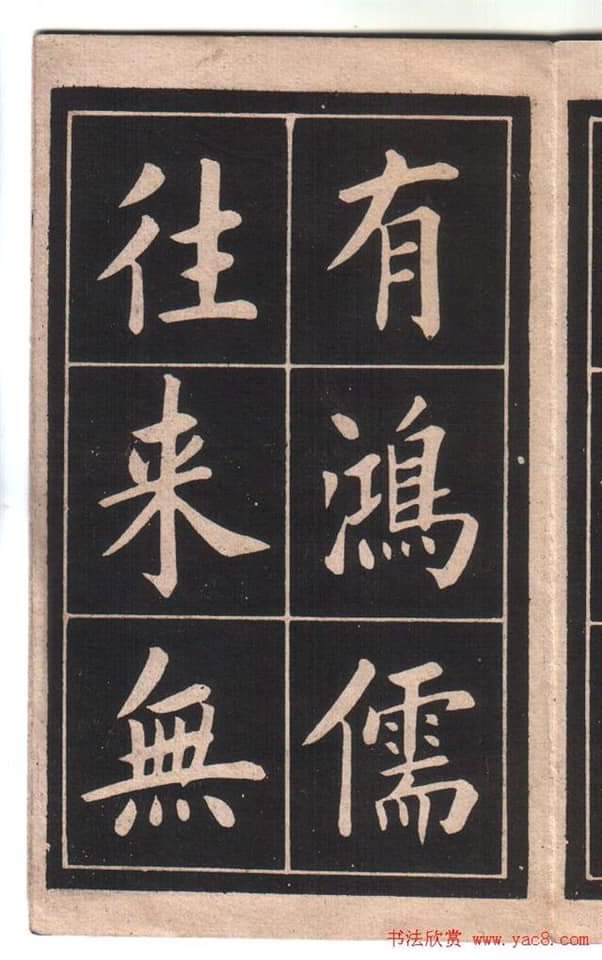 有鴻儒
往来無
书法欣赏 www.yac8.com